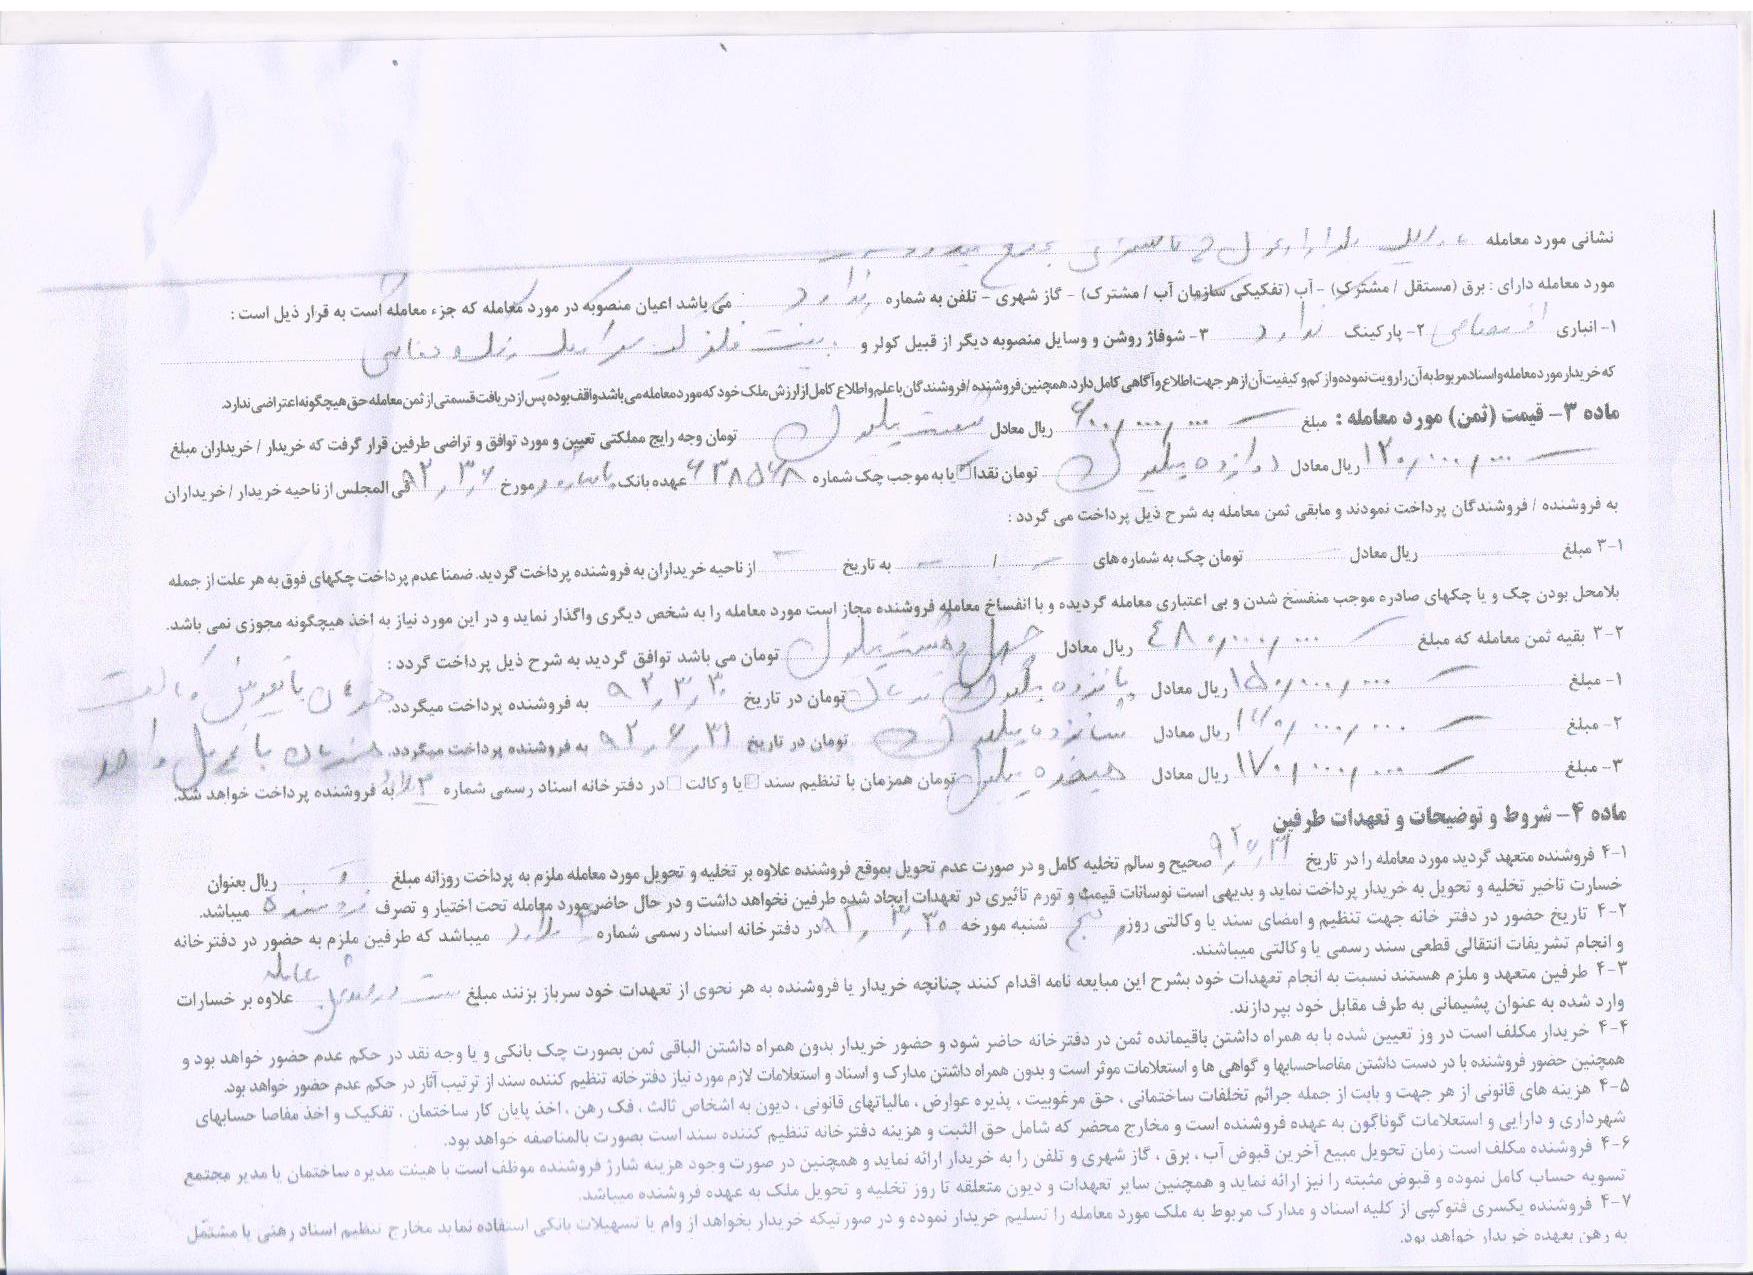 نشانی مورد معامله
مورد معامله دارای : برق (مستقل / مشترک) - آب (تفکیکی سازمان آب / مشترک) - گاز شهری - تلفن به شماره ندارد می باشد اعیان منصوبه در مورد معامله که جزء معامله است به قرار ذیل است :
۱- انباری ۲- پارکینگ ندارد ۳- شوفاژ روشن و وسایل منصوبه دیگر از قبیل کولر و
که خریدار مورد معامله و اسناد مربوط به آن را رویت نموده و از کم و کیفیت آن از هر جهت اطلاع و آگاهی کامل دارد. همچنین فروشنده / فروشندگان با علم و اطلاع کامل از ارزش ملک خود که مورد معامله می باشد واقف بوده پس از دریافت قسمتی از ثمن معامله حق هیچگونه اعتراضی ندارد.
ماده ۳- قیمت (ثمن) مورد معامله : مبلغ ۶۰۰/۰۰۰/۰۰۰ ریال معادل شصت میلیون تومان وجه رایج مملکتی تعیین و مورد توافق و تراضی طرفین قرار گرفت که خریدار / خریداران مبلغ
۱۲۰/۰۰۰/۰۰۰ ریال معادل دوازده میلیون تومان نقدا یا به موجب چک شماره عهده بانک مورخ ۹۲/۳/۶ فی المجلس از ناحیه خریدار / خریداران
به فروشنده / فروشندگان پرداخت نمودند و مابقی ثمن معامله به شرح ذیل پرداخت می گردد :
۳-۱ مبلغ ریال معادل تومان چک به شماره های / به تاریخ از ناحیه خریداران به فروشنده پرداخت گردید. ضمنا عدم پرداخت چکهای فوق به هر علت از جمله
بلامحل بودن چک و یا چکهای صادره موجب منفسخ شدن و بی اعتباری معامله گردیده و با انفساخ معامله فروشنده مجاز است مورد معامله را به شخص دیگری واگذار نماید و در این مورد نیاز به اخذ هیچگونه مجوزی نمی باشد.
۳-۲ بقیه ثمن معامله که مبلغ ۴۸۰/۰۰۰/۰۰۰ ریال معادل چهل و هشت میلیون تومان می باشد توافق گردید به شرح ذیل پرداخت گردد :
۱- مبلغ ۱۵۰/۰۰۰/۰۰۰ ریال معادل پانزده میلیون تومان در تاریخ ۹۲/۳/۳۰ به فروشنده پرداخت میگردد. همزمان با تعویض وکالت
۲- مبلغ ۱۶۰/۰۰۰/۰۰۰ ریال معادل شانزده میلیون تومان در تاریخ ۹۲/۶/۳۱ به فروشنده پرداخت میگردد. همزمان با تحویل واحد
۳- مبلغ ۱۷۰/۰۰۰/۰۰۰ ریال معادل هفده میلیون تومان همزمان با تنظیم سند یا وکالت در دفترخانه اسناد رسمی شماره به فروشنده پرداخت خواهد شد.
ماده ۴- شروط و توضیحات و تعهدات طرفین
۴-۱ فروشنده متعهد گردید مورد معامله را در تاریخ ۹۲/۶/۳۱ صحیح و سالم تخلیه کامل و در صورت عدم تحویل بموقع فروشنده علاوه بر تخلیه و تحویل مورد معامله ملزم به پرداخت روزانه مبلغ ریال بعنوان
خسارت تاخیر تخلیه و تحویل به خریدار پرداخت نماید و بدیهی است نوسانات قیمت و تورم تاثیری در تعهدات ایجاد شده طرفین نخواهد داشت و در حال حاضر مورد معامله تحت اختیار و تصرف فروشنده میباشد.
۴-۲ تاریخ حضور در دفتر خانه جهت تنظیم و امضای سند یا وکالتی روز پنج شنبه مورخه ۹۲/۳/۳۰ در دفترخانه اسناد رسمی شماره میباشد که طرفین ملزم به حضور در دفترخانه
و انجام تشریفات انتقالی قطعی سند رسمی یا وکالتی میباشند.
۴-۳ طرفین متعهد و ملزم هستند نسبت به انجام تعهدات خود بشرح این مبایعه نامه اقدام کنند چنانچه خریدار یا فروشنده به هر نحوی از تعهدات خود سرباز بزنند مبلغ علاوه بر خسارات
وارد شده به عنوان پشیمانی به طرف مقابل خود بپردازند.
۴-۴ خریدار مکلف است در وز تعیین شده با به همراه داشتن باقیمانده ثمن در دفترخانه حاضر شود و حضور خریدار بدون همراه داشتن الباقی ثمن بصورت چک بانکی و یا وجه نقد در حکم عدم حضور خواهد بود و
همچنین حضور فروشنده با در دست داشتن مفاصاحسابها و گواهی ها و استعلامات موثر است و بدون همراه داشتن مدارک و اسناد و استعلامات لازم مورد نیاز دفترخانه تنظیم کننده سند از ترتیب آثار در حکم عدم حضور خواهد بود.
۴-۵ هزینه های قانونی از هر جهت و بابت از جمله جرائم تخلفات ساختمانی ، حق مرغوبیت ، پذیره عوارض ، مالیاتهای قانونی ، دیون به اشخاص ثالث ، فک رهن ، اخذ پایان کار ساختمان ، تفکیک و اخذ مفاصا حسابهای
شهرداری و دارایی و استعلامات گوناگون به عهده فروشنده است و مخارج محضر که شامل حق الثبت و هزینه دفترخانه تنظیم کننده سند است بصورت بالمناصفه خواهد بود.
۴-۶ فروشنده مکلف است زمان تحویل مبیع آخرین قبوض آب ، برق ، گاز شهری و تلفن را به خریدار ارائه نماید و همچنین در صورت وجود هزینه شارژ فروشنده موظف است با هیئت مدیره ساختمان یا مدیر مجتمع
تسویه حساب کامل نموده و قبوض مثبته را نیز ارائه نماید و همچنین سایر تعهدات و دیون متعلقه تا روز تخلیه و تحویل ملک به عهده فروشنده میباشد.
۴-۷ فروشنده یکسری فتوکپی از کلیه اسناد و مدارک مربوط به ملک مورد معامله را تسلیم خریدار نموده و در صورتیکه خریدار بخواهد از وام یا تسهیلات بانکی استفاده نماید مخارج تنظیم اسناد رهنی یا مشتمل
به رهن بعهده خریدار خواهد بود.